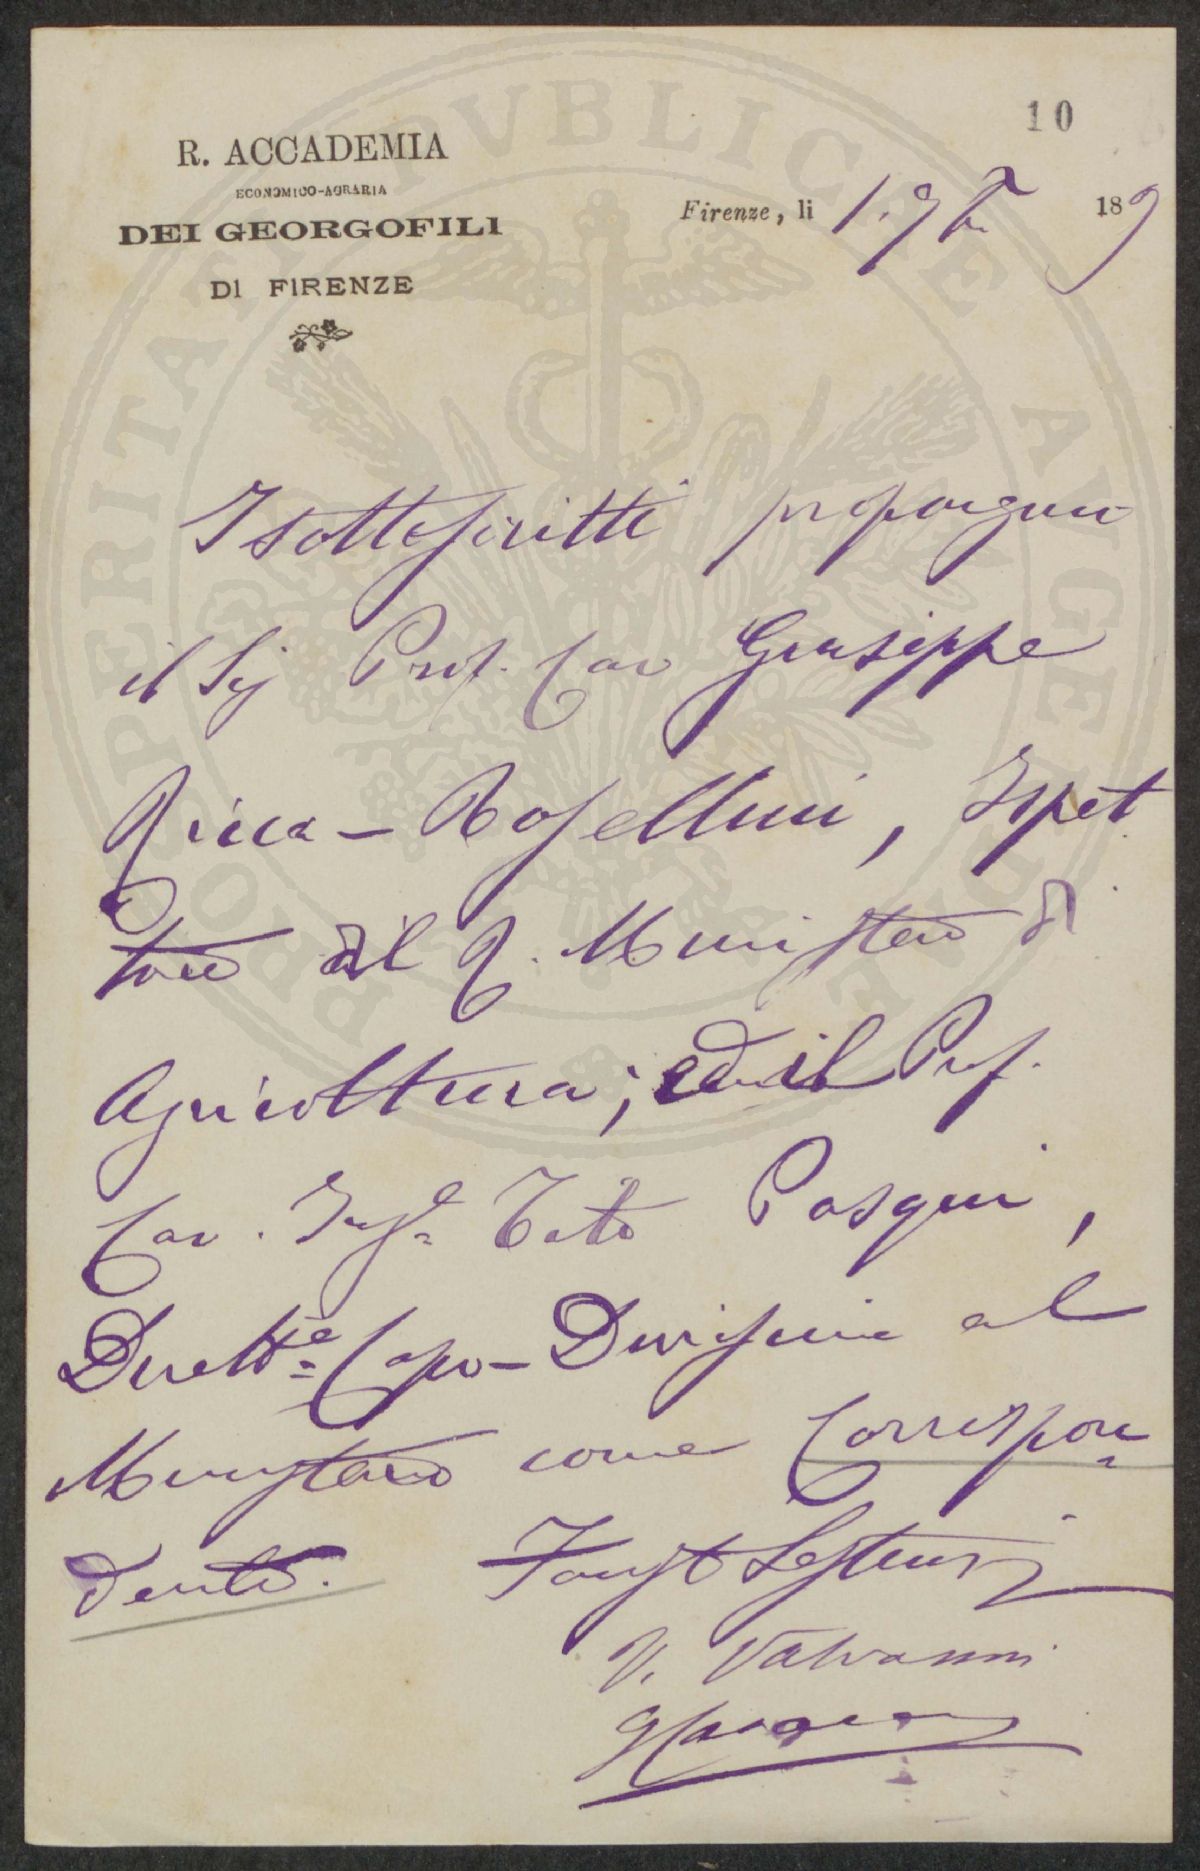 10
R. ACCADEMIA
ECONOMICO-AGRARIA
DEI GEORGOFILI
DI FIRENZE
Firenze, lì 1. 9bre 189
PROSPERITATI PVBLICAE AVGENDAE
I sottoscritti propongono
il Sig Prof. Cav Giuseppe
Ricca-Rosellini, Ispet
tore al R. Ministero di
Agricoltura; ed il Prof.
Cav. Inge Tito Pasqui,
Dirette Capo-Divisione al
Ministero come Correspon
dente.
V. Valvassori